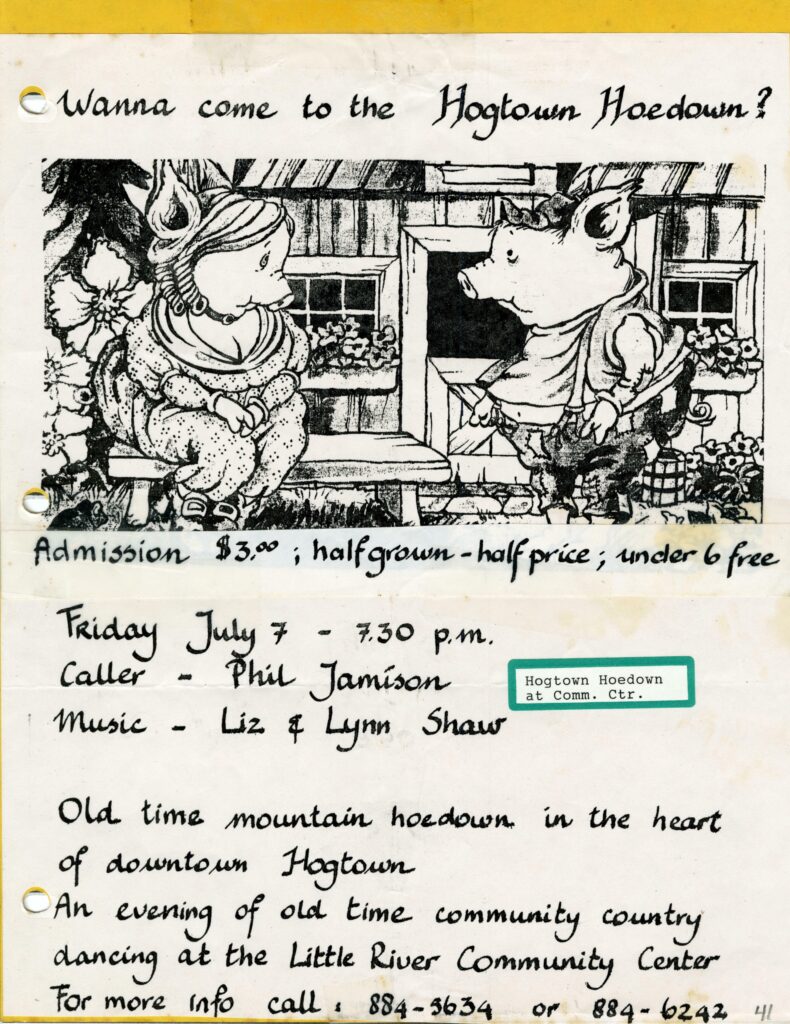 Wanna come to the Hogtown Hoedown?
Admission $3.00 ; half grown - half price ; under 6 free
Friday July 7 - 7.30 p.m.
Caller - Phil Jamison
Hogtown Hoedown
at Comm. Ctr.
Music - Liz & Lynn Shaw
Old time mountain hoedown in the heart
of downtown Hogtown
An evening of old time community country
dancing at the Little River Community Center
For more info call : 884-3634 or 884-6242
41